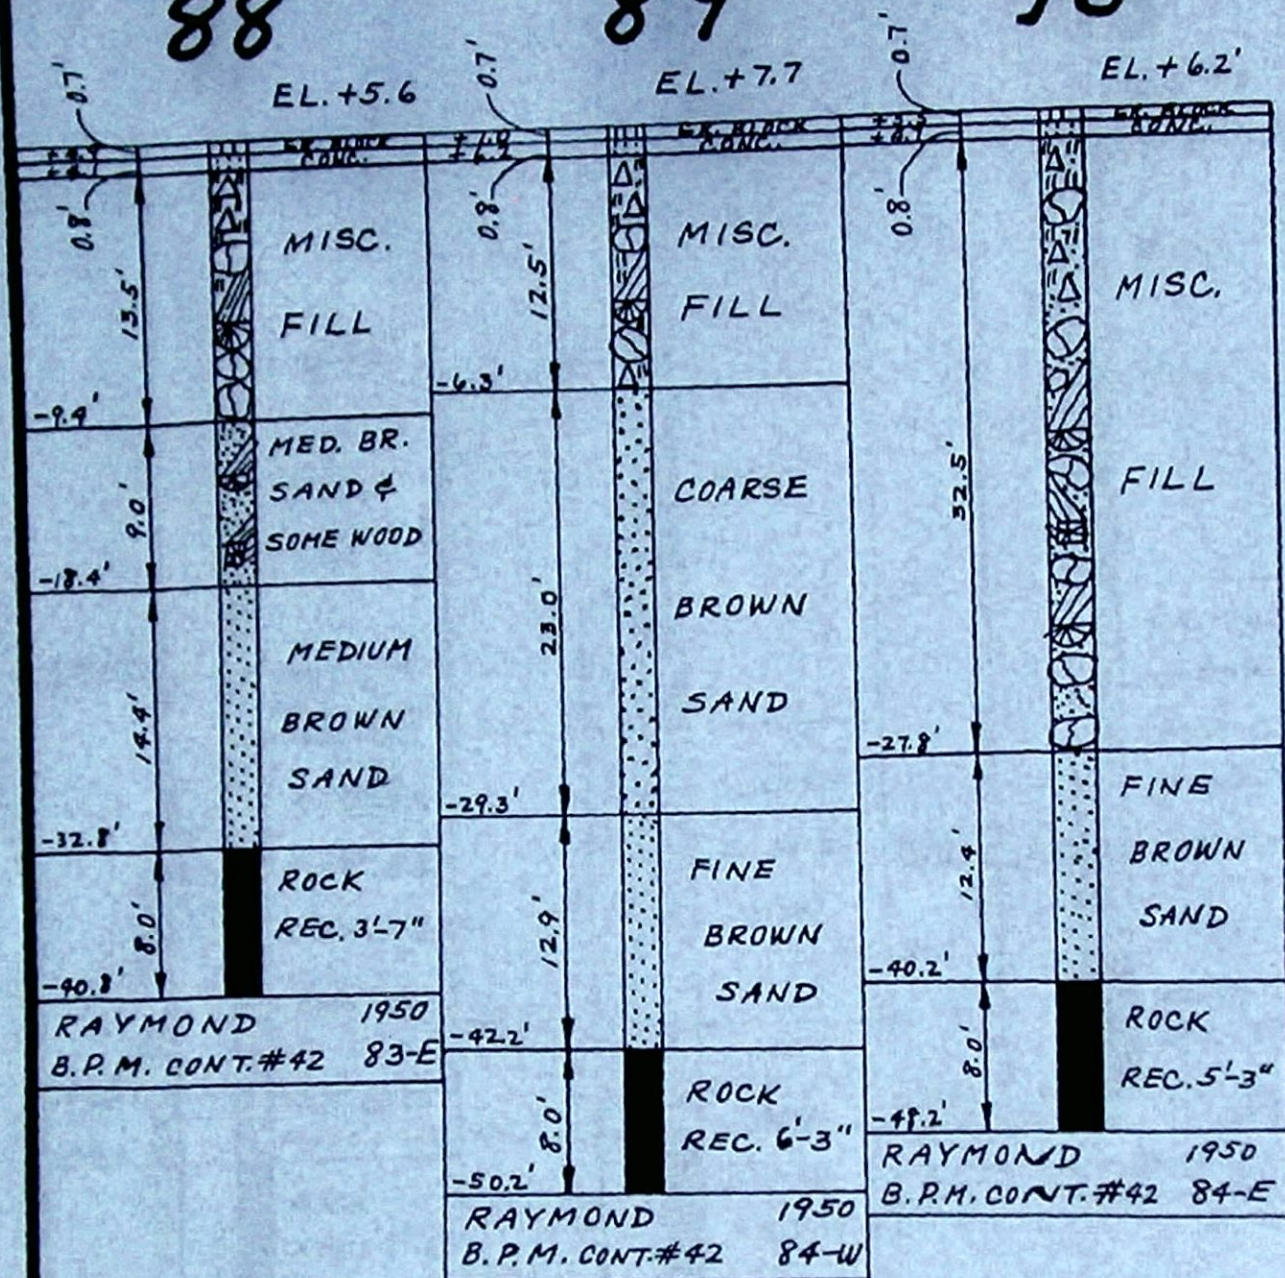 88
89
EL. +5.6
0.7'
0.8'
CONC.
13.5'
MISC.
FILL
-9.4'
9.0'
MED. BR.
SAND &
SOME WOOD
-18.4'
14.4'
MEDIUM
BROWN
SAND
-32.8'
8.0'
ROCK
REC. 3'-7"
-40.8'
RAYMOND 1950
B.P.M. CONT. #42 83-E
EL. +7.7
0.7'
0.8'
BLOCK
CONC.
12.5'
MISC.
FILL
-6.3'
23.0'
COARSE
BROWN
SAND
-29.3'
12.9'
FINE
BROWN
SAND
-42.2'
8.0'
ROCK
REC. 6'-3"
-50.2'
RAYMOND 1950
B.P.M. CONT. #42 84-W
EL. +6.2'
0.7'
0.8'
BLOCK
CONC.
32.5'
MISC.
FILL
-27.8'
12.4'
FINE
BROWN
SAND
-40.2'
8.0'
ROCK
REC. 5'-3"
-48.2'
RAYMOND 1950
B.P.M. CONT. #42 84-E